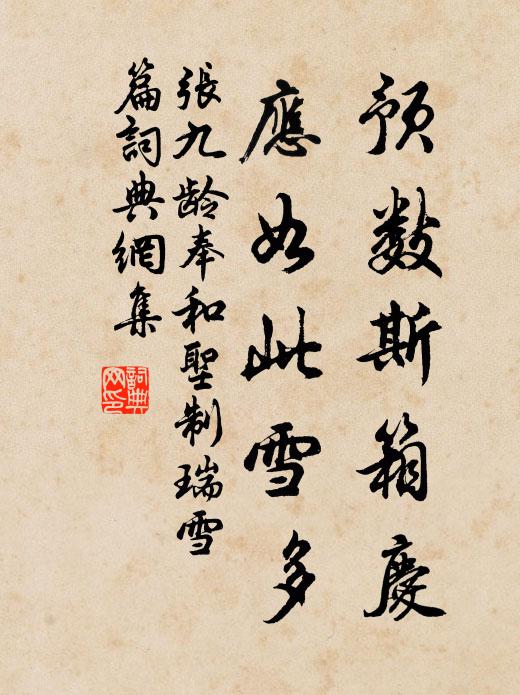 預数斯箱慶
應如此雪多
張九龄奉和聖制瑞雪
篇詞典網集
詞典
网印